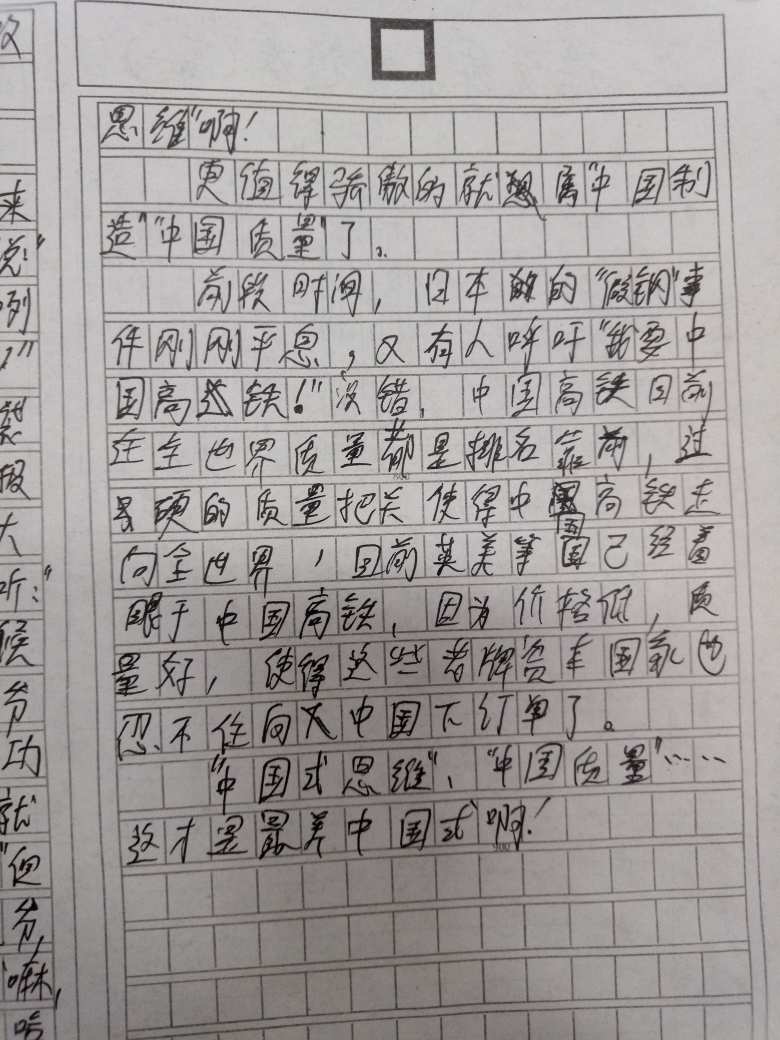 思维"啊！
更值得骄傲的就想属"中国制
造""中国质量"了。
前段时间，日本的"假钢"事
件刚刚平息，又有人呼吁"我要中
国高铁！"没错，中国高铁目前
在全世界质量都是排名靠前，过
硬的质量把关使得中国高铁走
向全世界，目前英美等国已经着
眼于中国高铁，因为价格低，质
量好，使得这些老牌资本国家也
忍不住向中国下订单了。
"中国式思维"、"中国质量"……
这才是最美中国式啊！
900
来
说："
例
"
大
听："
候
爷
功
就
"但
爷，
嘛，